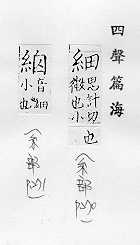 四聲篇海
細思計切
微也小
也
(糸部
音細
小也
(糸部